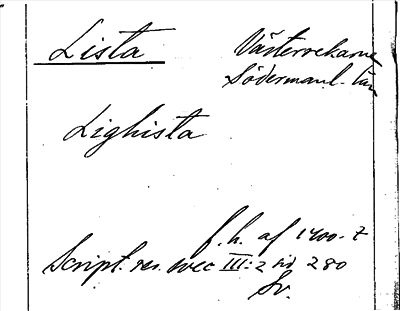 Lista Västerrekarne
Södermanl. län
Lighista
f. h. af 1400-t
Script. rer. svec III:2 sid 280
Sv.